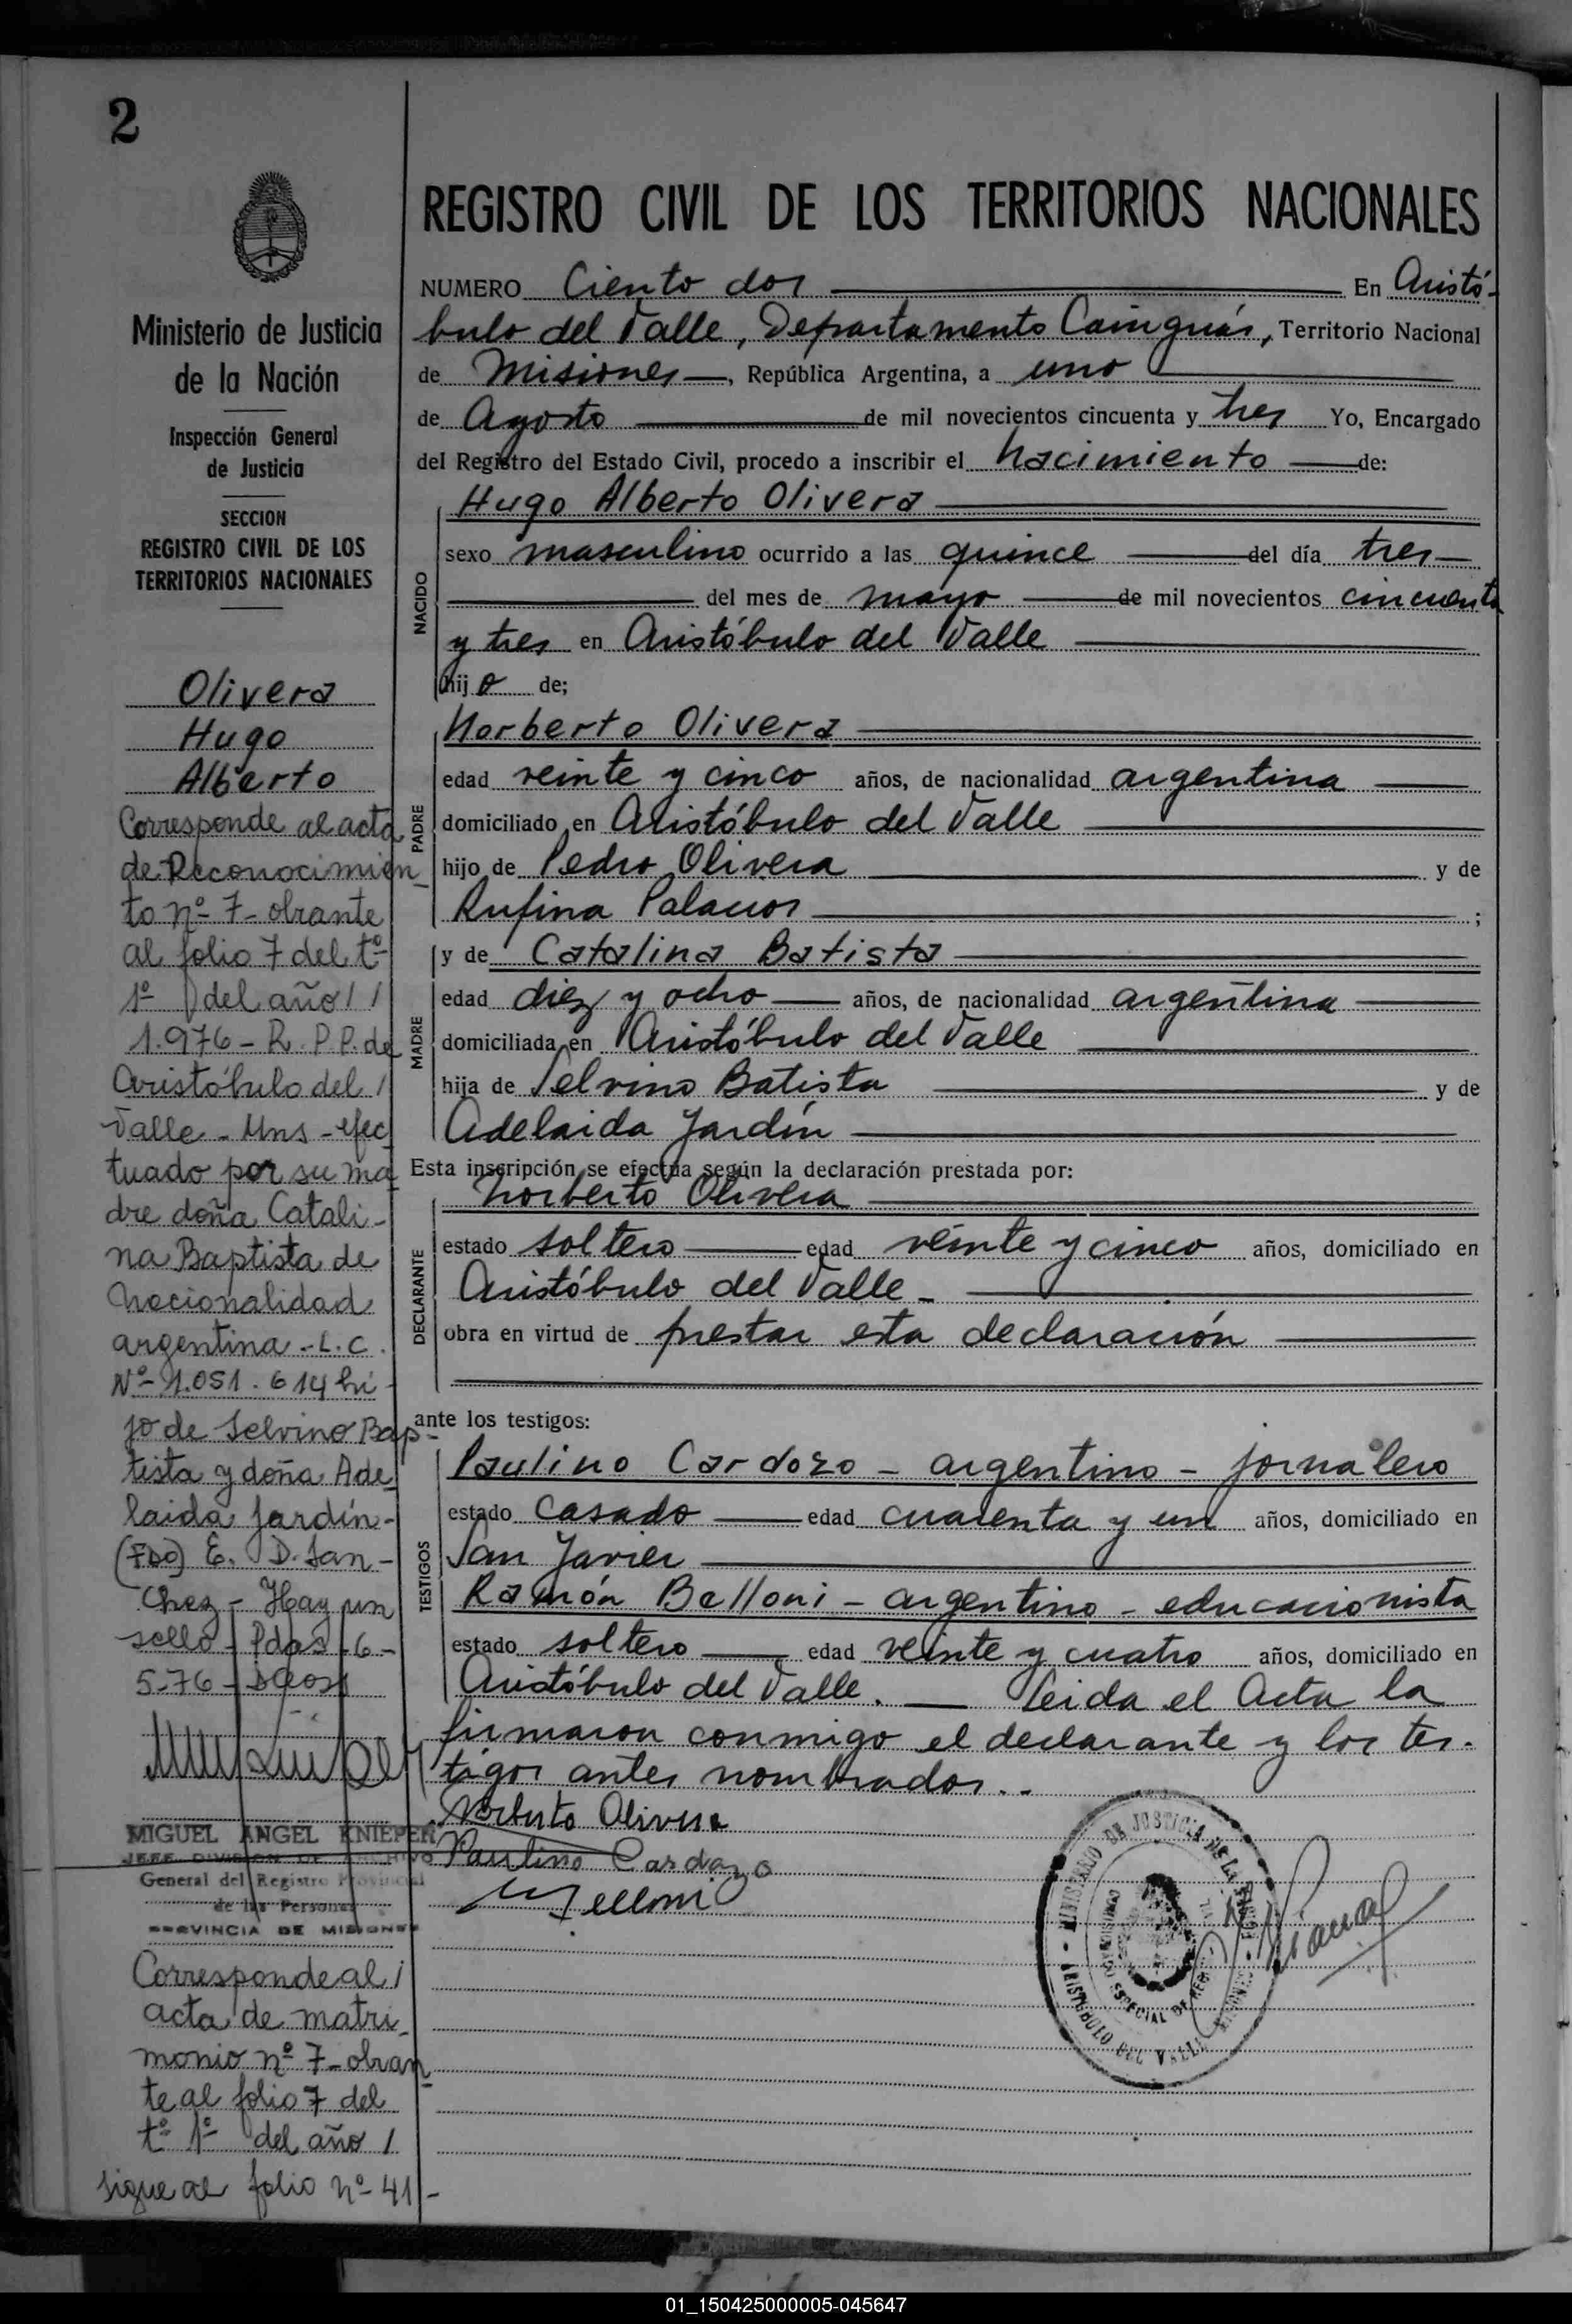 2
Ministerio de Justicia
de la Nación
Inspección General
de Justicia
SECCION
REGISTRO CIVIL DE LOS
TERRITORIOS NACIONALES
Olivera
Hugo
Alberto
Corresponde al acta
de Reconocimien
to nº 7 - obrante
al folio 7 del tº
1º del año / /
1.976 - R.P.P. de
Aristóbulo del /
Valle - Mns - efec
tuado por su ma
dre doña Catali-
na Baptista de
Nacionalidad
argentina - L.C.
Nº 1.051.614 hi-
jo de Selvino Bap-
tista y doña Ade
laida Jardín-
(FDO) E. D. San-
chez - Hay un
sello - Pdas - 6 -
5-76 -
MIGUEL ANGEL KNIEPER
JEFE DIVISION DE ARCHIVO
General del Registro Provincial
de las Personas
PROVINCIA DE MISIONES
Corresponde al /
acta de matri-
monio nº 7 - obran
te al folio 7 del
tº 1º del año /
sigue al folio nº 41/-
REGISTRO CIVIL DE LOS TERRITORIOS NACIONALES
NUMERO Ciento dos En Aristó-
bulo del Valle, Departamento Cainguás, Territorio Nacional
de Misiones, República Argentina, a uno
de Agosto de mil novecientos cincuenta y tres Yo, Encargado
del Registro del Estado Civil, procedo a inscribir el nacimiento de:
Hugo Alberto Olivera
NACIDO
sexo masculino ocurrido a las quince del día tres
del mes de mayo de mil novecientos cincuenta
y tres en Aristóbulo del Valle
hijo de;
PADRE
Norberto Olivera
edad veinte y cinco años, de nacionalidad argentina
domiciliado en Aristóbulo del Valle
hijo de Pedro Olivera y de
Rufina Palacios ;
MADRE
y de Catalina Batista
edad diez y ocho años, de nacionalidad argentina
domiciliada en Aristóbulo del Valle
hija de Selvino Batista y de
Adelaida Jardín
Esta inscripción se efectúa según la declaración prestada por:
DECLARANTE
Norberto Olivera
estado soltero edad veinte y cinco años, domiciliado en
Aristóbulo del Valle -
obra en virtud de prestar esta declaración
ante los testigos:
TESTIGOS
Paulino Cardozo - argentino - jornalero
estado casado edad cuarenta y un años, domiciliado en
San Javier
Ramón Belloni - argentino - educacionista
estado soltero edad veinte y cuatro años, domiciliado en
Aristóbulo del Valle. Leida el Acta la
firmaron conmigo el declarante y los tes-
tigos antes nombrados. -
Norberto Olivera
Paulino Cardozo
Belloni
MINISTERIO DE JUSTICIA DE LA NACION
ARISTOBULO DEL VALLE - MISIONES
01_150425000005-045647